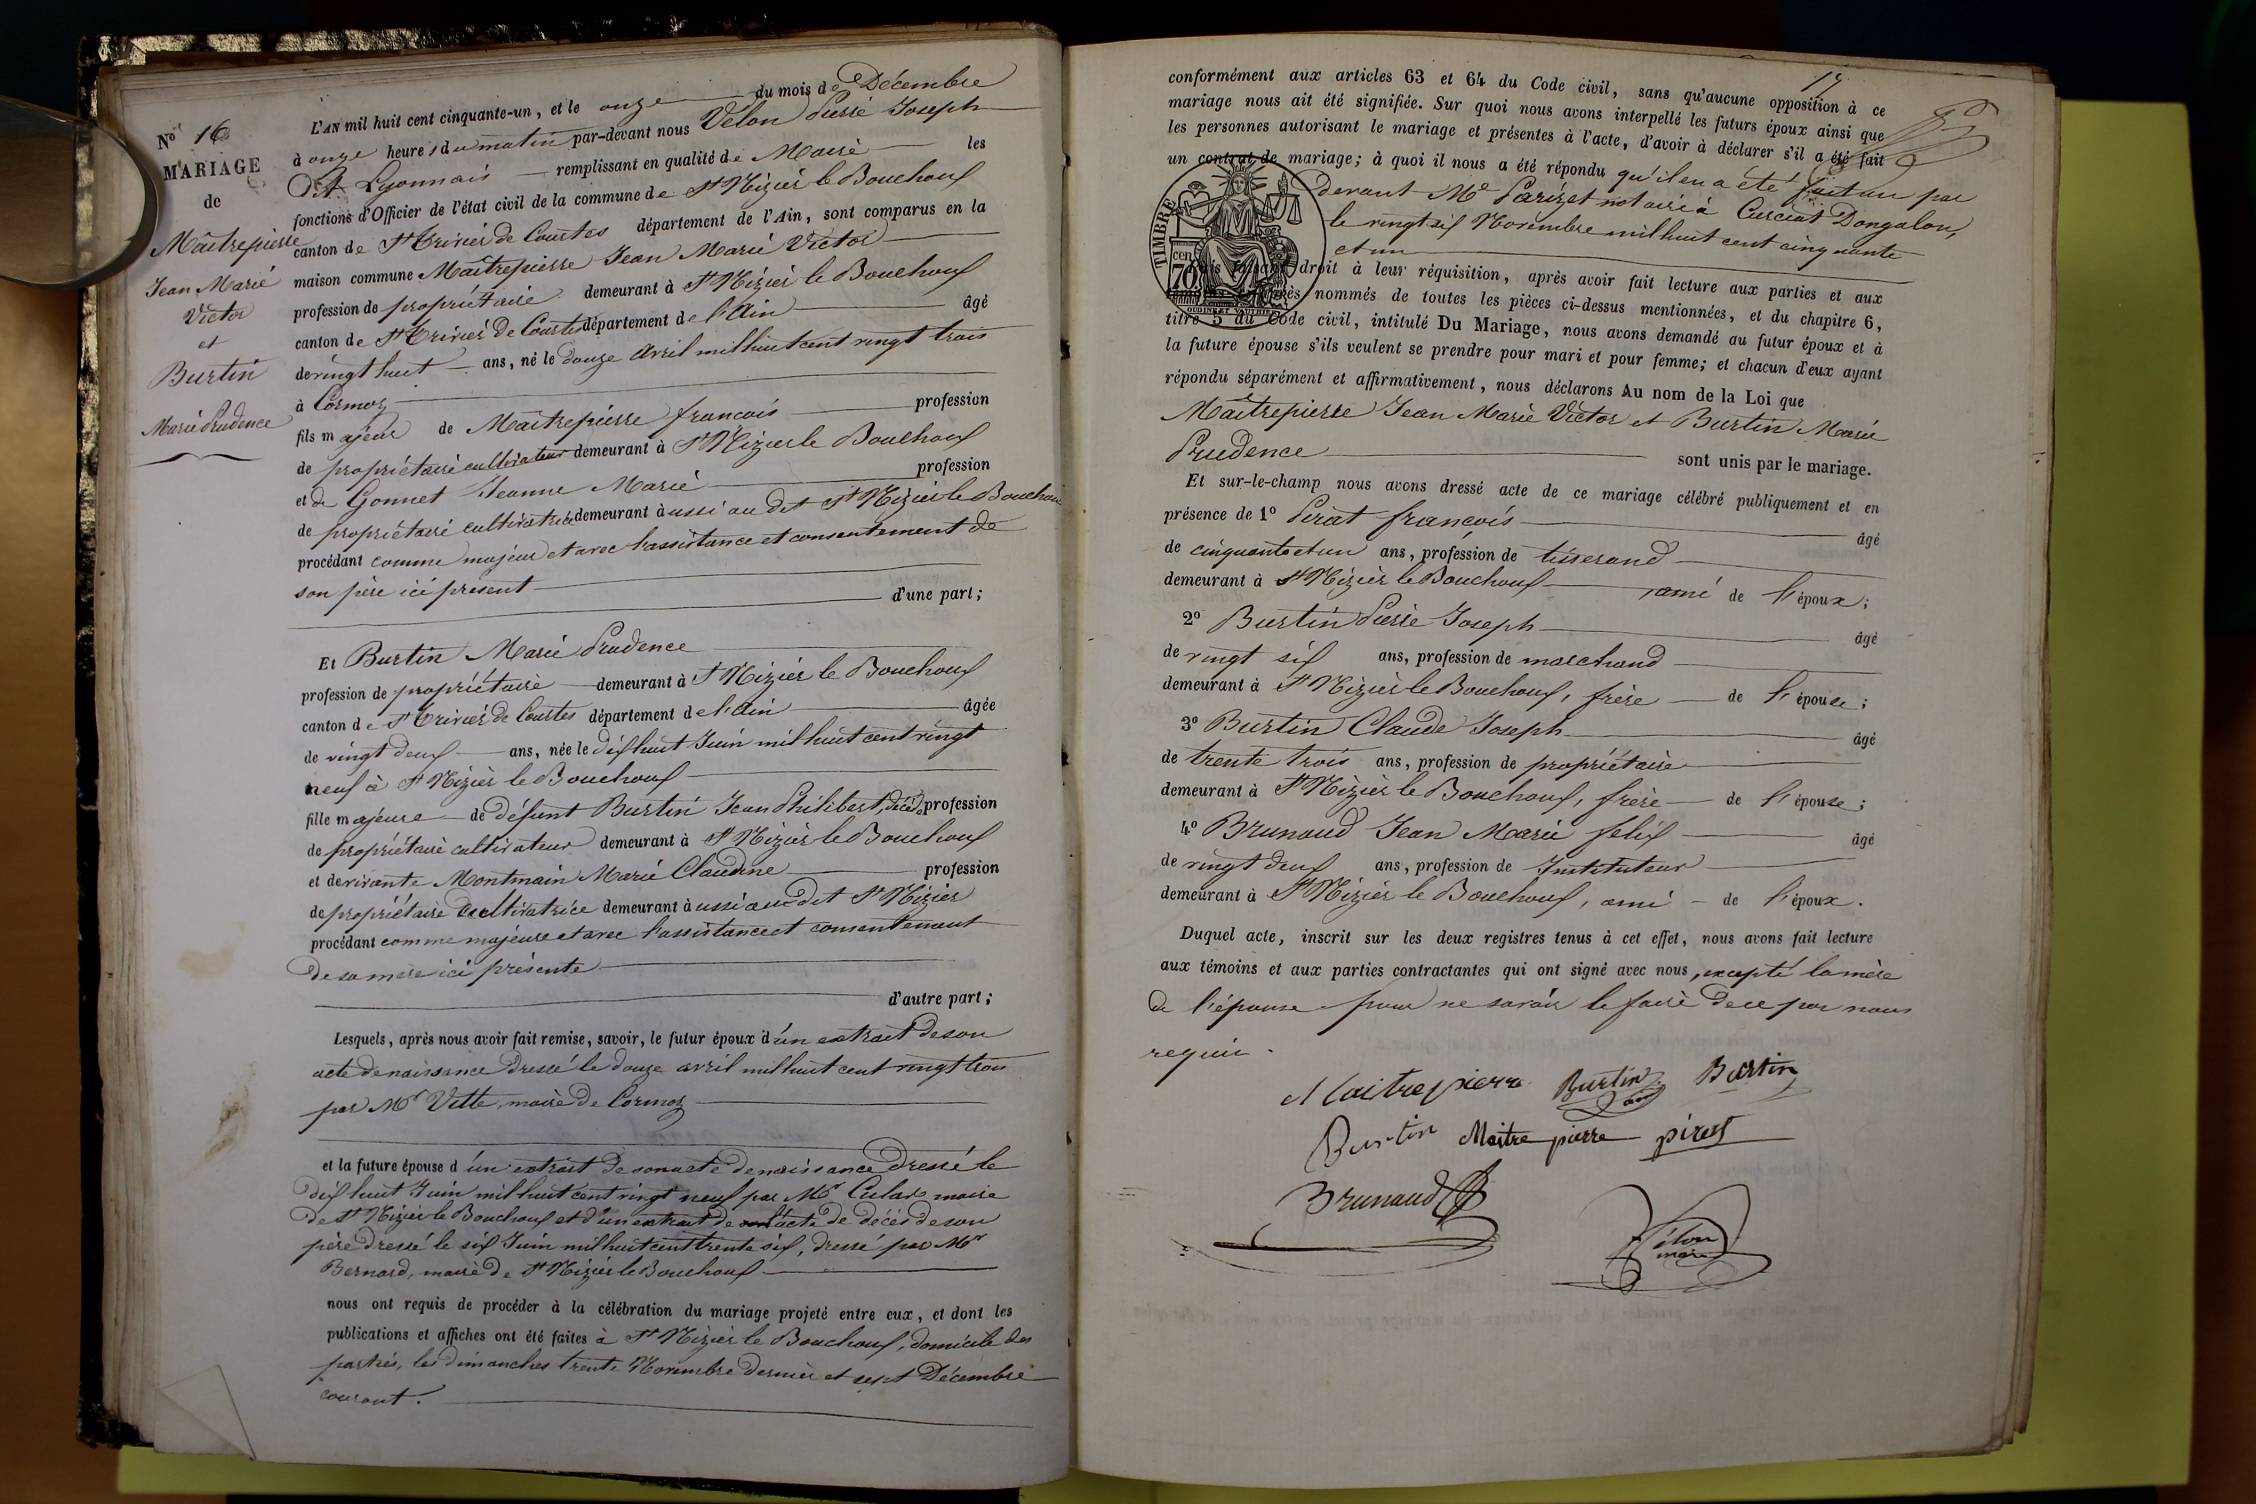 Nº 16
MARIAGE
de
Maîtrepierre
Jean Marie
Victor
et
Burtin
Marie Prudence
L'AN mil huit cent cinquante-un, et le onze du mois de Décembre
à onze heures du matin par-devant nous Vélon Pierre Joseph
dit Lyonnais remplissant en qualité de Maire les
fonctions d'Officier de l'état civil de la commune de St Nizier le Bouchoux
canton de St Trivier de Courtes département de l'Ain, sont comparus en la
maison commune Maîtrepierre Jean Marie Victor
profession de propriétaire demeurant à St Nizier le Bouchoux
canton de St Trivier de Courtes département de l'Ain âgé
de vingt huit ans, né le douze avril mil huit cent vingt trois
à Cormoz
fils majeur de Maîtrepierre françois profession
de propriétaire cultivateur demeurant à St Nizier le Bouchoux
et de Gonnet Jeanne Marie profession
de propriétaire cultivatrice demeurant à ussi au dit St Nizier le Bouchoux
procédant comme majeur et avec l'assistance et consentement de
son père ici présent
d'une part;
Et Burtin Marie Prudence
profession de propriétaire demeurant à St Nizier le Bouchoux
canton de St Trivier de Courtes département de l'Ain âgée
de vingt deux ans, née le dix huit Juin mil huit cent vingt
neuf à St Nizier le Bouchoux
fille majeure de défunt Burtin Jean Philibert, décédé profession
de propriétaire cultivateur demeurant à St Nizier le Bouchoux
et de vivante Montmain Marie Claudine profession
de propriétaire cultivatrice demeurant à ussi au dit St Nizier
procédant comme majeure et avec l'assistance et consentement
de sa mère ici présente
d'autre part;
Lesquels, après nous avoir fait remise, savoir, le futur époux d'un extrait de son
acte de naissance dressé le douze avril mil huit cent vingt trois
par Mr Vette, maire de Cormoz
et la future épouse d'un extrait de son acte de naissance dressé le
dix huit Juin mil huit cent vingt neuf par Mr Culas maire
de St Nizier le Bouchoux et d'un extrait de l'acte de décès de son
père dressé le six Juin mil huit cent trente six, dressé par Mr
Bernard, maire de St Nizier le Bouchoux
nous ont requis de procéder à la célébration du mariage projeté entre eux, et dont les
publications et affiches ont été faites à St Nizier le Bouchoux, domicile des
parties, les dimanches trente Novembre dernier et sept Décembre
courant.
17
conformément aux articles 63 et 64 du Code civil, sans qu'aucune opposition à ce
mariage nous ait été signifiée. Sur quoi nous avons interpellé les futurs époux ainsi que
les personnes autorisant le mariage et présentes à l'acte, d'avoir à déclarer s'il a été fait
un contrat de mariage; à quoi il nous a été répondu qu'il en a été fait un par
devant Me Parizet notaire à Curciat Dongalon,
le vingt six Novembre mil huit cent cinquante
et un
TIMBRE
70 cen
OUDINE ET VAUTHIER
Puis faisant droit à leur réquisition, après avoir fait lecture aux parties et aux
après nommés de toutes les pièces ci-dessus mentionnées, et du chapitre 6,
titre 5 du Code civil, intitulé Du Mariage, nous avons demandé au futur époux et à
la future épouse s'ils veulent se prendre pour mari et pour femme; et chacun d'eux ayant
répondu séparément et affirmativement, nous déclarons Au nom de la Loi que
Maîtrepierre Jean Marie Victor et Burtin Marie
Prudence sont unis par le mariage.
Et sur-le-champ nous avons dressé acte de ce mariage célébré publiquement et en
présence de 1º Pirat françois âgé
de cinquante et un ans, profession de tisserand
demeurant à St Nizier le Bouchoux ami de l'époux;
2º Burtin Pierre Joseph âgé
de vingt six ans, profession de marchand
demeurant à St Nizier le Bouchoux, frère de l'épouse;
3º Burtin Claude Joseph âgé
de trente trois ans, profession de propriétaire
demeurant à St Nizier le Bouchoux, frère de l'épouse;
4º Brunaud Jean Marie felix âgé
de vingt deux ans, profession de Instituteur
demeurant à St Nizier le Bouchoux, ami de l'époux.
Duquel acte, inscrit sur les deux registres tenus à cet effet, nous avons fait lecture
aux témoins et aux parties contractantes qui ont signé avec nous, excepté la mère
de l'épouse pour ne savoir le faire de ce par nous
requise.
Maitrepierre Burtin Burtin
Burtin Maitre pierre pirat
Brunaud
Vélon
maire